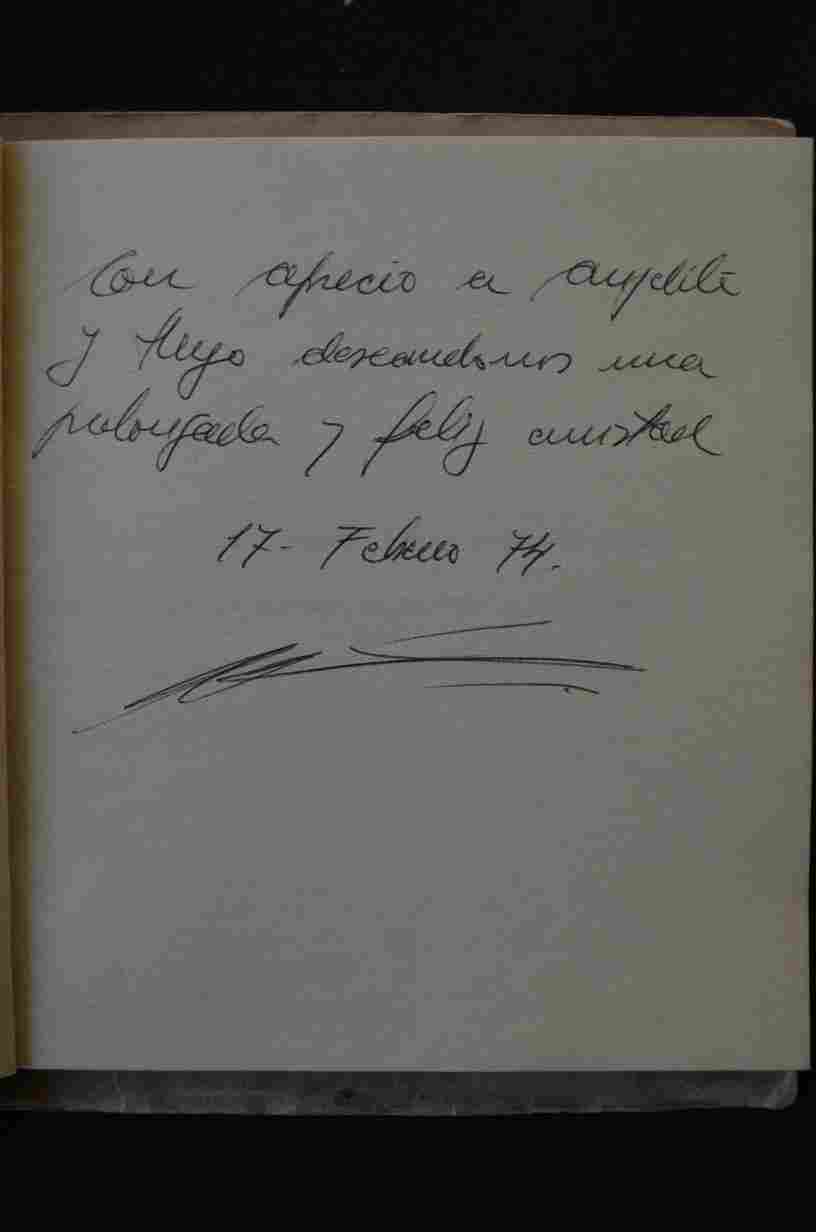 Con aprecio a
y Hugo deseandonos una
prolongada y feliz amistad
17- Febrero 74.